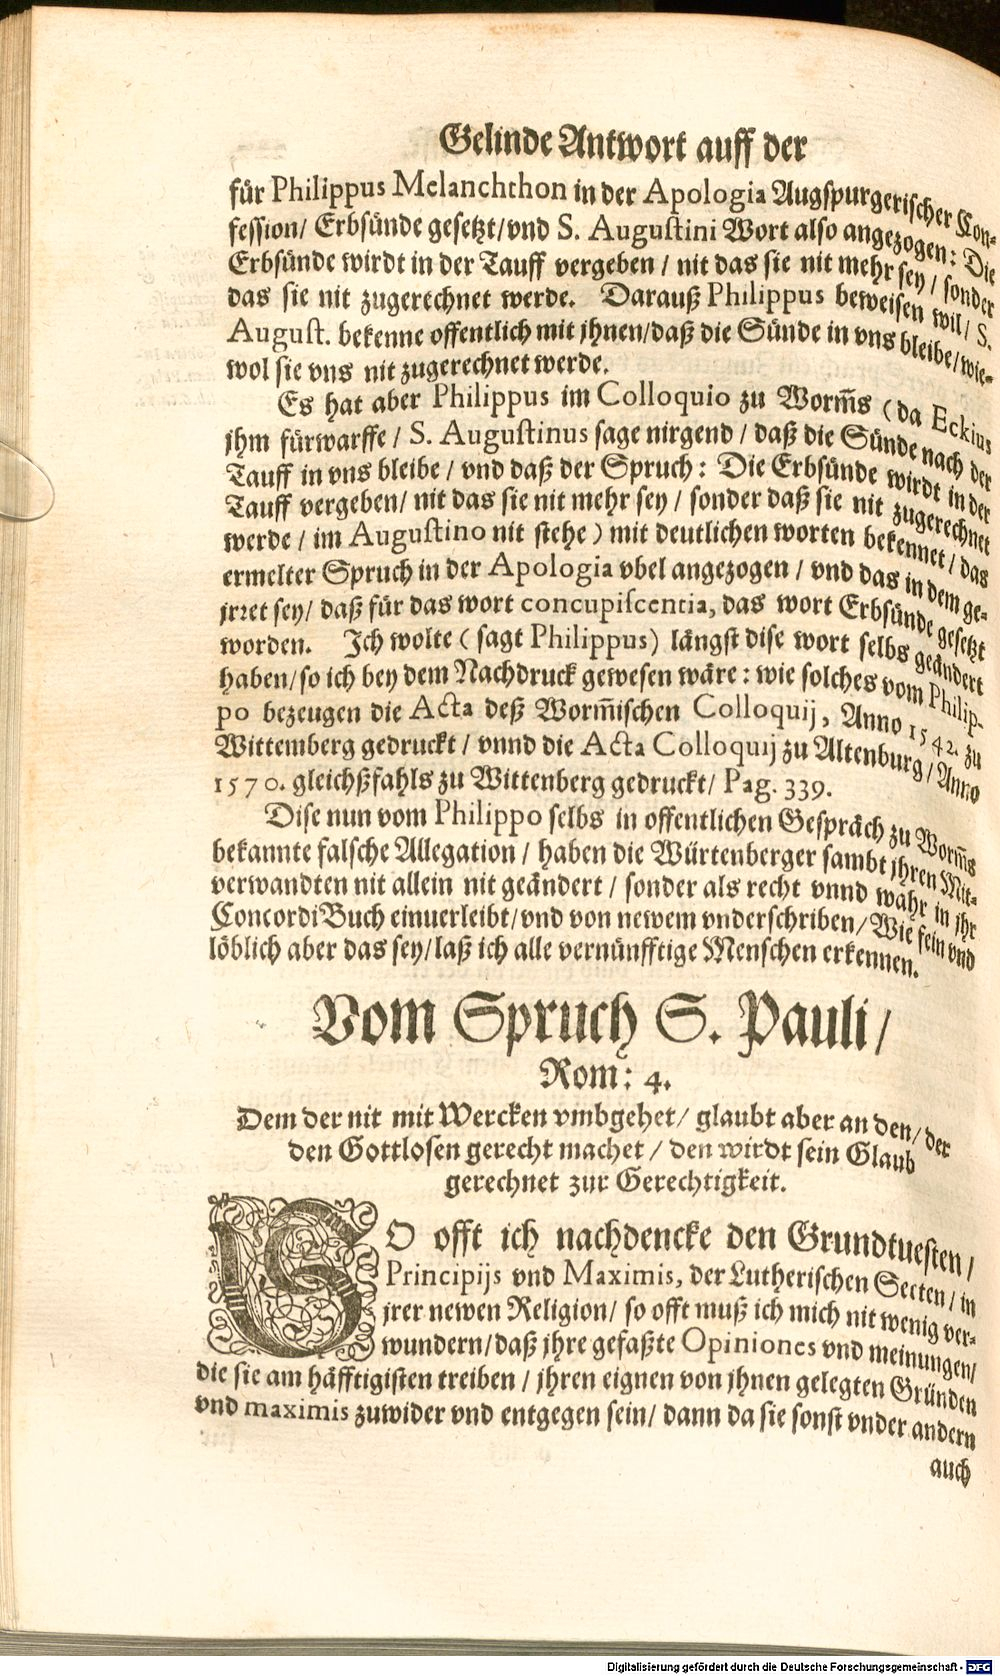 Gelinde Antwort auff der
für Philippus Melanchthon in der Apologia Augspurgerischer Con-
fession/ Erbsünde gesetzt/vnd S. Augustini Wort also angezogen: Die
Erbsünde wirdt in der Tauff vergeben / nit das sie nit mehr sey / sonder
das sie nit zugerechnet werde. Darauß Philippus beweisen wil/ S.
August. bekenne offentlich mit jhnen/daß die Sünde in vns bleibe/wie-
wol sie vns nit zugerechnet werde.
Es hat aber Philippus im Colloquio zu Worm̃s (da Eckius
jhm fürwarffe / S. Augustinus sage nirgend / daß die Sünde nach der
Tauff in vns bleibe / vnd daß der Spruch: Die Erbsünde wirdt in der
Tauff vergeben/ nit das sie nit mehr sey / sonder daß sie nit zugerechnet
werde / im Augustino nit stehe ) mit deutlichen worten bekennet / das
ermelter Spruch in der Apologia vbel angezogen / vnd das in dem ge-
jrret sey/ daß für das wort concupiscentia, das wort Erbsünde gesetzt
worden. Ich wolte ( sagt Philippus) längst dise wort selbs geändert
haben/so ich bey dem Nachdruck gewesen wäre: wie solches vom Philip-
po bezeugen die Acta deß Worm̃ischen Colloquij, Anno 1542. zu
Wittemberg gedruckt / vnnd die Acta Colloquij zu Altenburg / Anno
1570. gleichßfahls zu Wittenberg gedruckt/ Pag. 339.
Dise nun vom Philippo selbs in offentlichen Gespräch zu Worm̃s
bekannte falsche Allegation / haben die Würtenberger sambt jhren Mit-
verwandten nit allein nit geändert / sonder als recht vnnd wahr in jhr
ConcordiBuch einuerleibt/vnd von newem vnderschriben/ Wie fein vnd
löblich aber das sey/laß ich alle vernünfftige Menschen erkennen.
Vom Spruch S. Pauli /
Rom: 4.
Dem der nit mit Wercken vmbgehet/ glaubt aber an den/ der
den Gottlosen gerecht machet / den wirdt sein Glaub
gerechnet zur Gerechtigkeit.
SO offt ich nachdencke den Grundtuesten /
Principijs vnd Maximis, der Lutherischen Secten / in
jrer newen Religion/ so offt muß ich mich nit wenig ver-
wundern/daß jhre gefaßte Opiniones vnd meinungen/
die sie am häfftigisten treiben / jhren eignen von jhnen gelegten Gründen
vnd maximis zuwider vnd entgegen sein/ dann da sie sonst vnder andern
auch
Digitalisierung gefördert durch die Deutsche Forschungsgemeinschaft - DFG